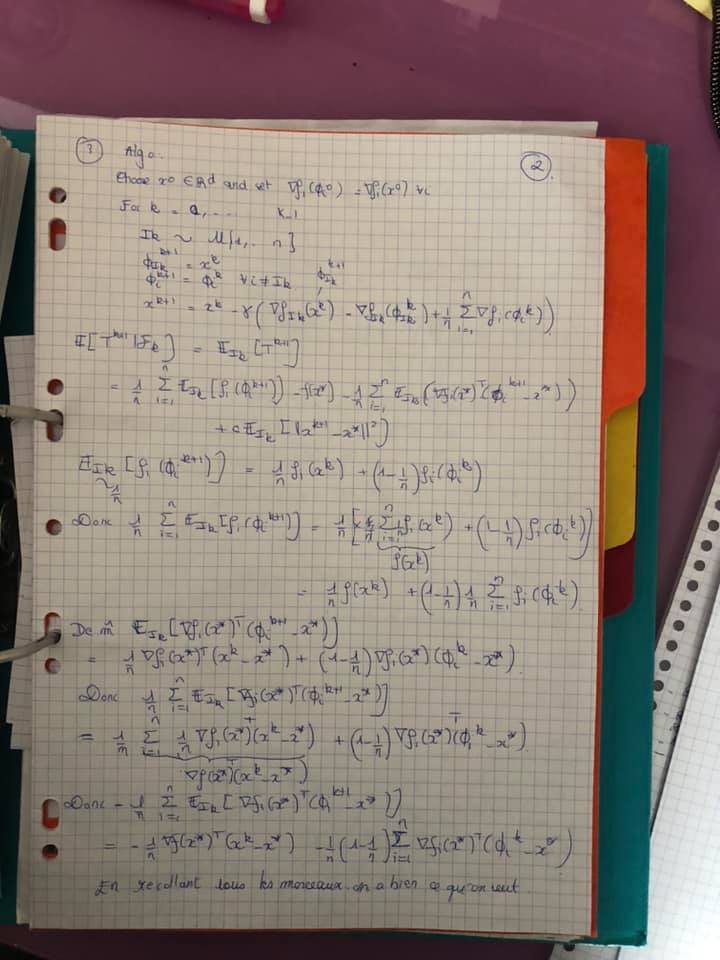 ③ Algo:
②
Choose x⁰ ∈ ℝᵈ and set ∇fᵢ(ϕᵢ⁰) = ∇fᵢ(x⁰) ∀i
For k = 0,... K-1
I_k ~ U{1,.. n}
ϕ_{I_k}^{k+1} = x^k
ϕᵢ^{k+1} = ϕᵢ^k ∀i≠I_k ϕ_{I_k}^{k+1}
x^{k+1} = x^k - γ(∇f_{I_k}(x^k) - ∇f_{I_k}(ϕ_{I_k}^k) + 1/n Σ_{i=1}^n ∇fᵢ(ϕᵢ^k))
E[T^{k+1}|F_k] = E_{I_k}[T^{k+1}]
= 1/n Σ_{i=1}^n E_{I_k}[fᵢ(ϕᵢ^{k+1})] - f(x*) - 1/n Σ_{i=1}^n E_{I_k}(∇fᵢ(x*)^T(ϕᵢ^{k+1} - x*))
+ c E_{I_k}[‖x^{k+1} - x*‖²]
E_{I_k}[fᵢ(ϕᵢ^{k+1})] = 1/n fᵢ(x^k) + (1-1/n) fᵢ(ϕᵢ^k)
~1/n
Donc 1/n Σ_{i=1}^n E_{I_k}[fᵢ(ϕᵢ^{k+1})] = 1/n [Σ_{i=1}^n 1/n fᵢ(x^k) + (1-1/n) fᵢ(ϕᵢ^k)]
f(x^k)
= 1/n f(x^k) + (1-1/n) 1/n Σ_{i=1}^n fᵢ(ϕᵢ^k)
De m̂ E_{I_k}[∇fᵢ(x*)^T(ϕᵢ^{k+1} - x*)]
= 1/n ∇fᵢ(x*)^T(x^k - x*) + (1-1/n) ∇fᵢ(x*)(ϕᵢ^k - x*)
Donc 1/n Σ_{i=1}^n E_{I_k}[∇fᵢ(x*)^T(ϕᵢ^{k+1} - x*)]
= 1/n Σ_{i=1}^n 1/n ∇fᵢ(x*)^T(x^k - x*) + (1-1/n) ∇fᵢ(x*)^T(ϕᵢ^k - x*)
∇f(x*)^T(x^k - x*)
Donc - 1/n Σ_{i=1}^n E_{I_k}[∇fᵢ(x*)^T(ϕᵢ^{k+1} - x*)]
= - 1/n ∇f(x*)^T(x^k - x*) - 1/n (1-1/n) Σ_{i=1}^n ∇fᵢ(x*)^T(ϕᵢ^k - x*)
En recollant tous les morceaux on a bien ce qu'on veut.